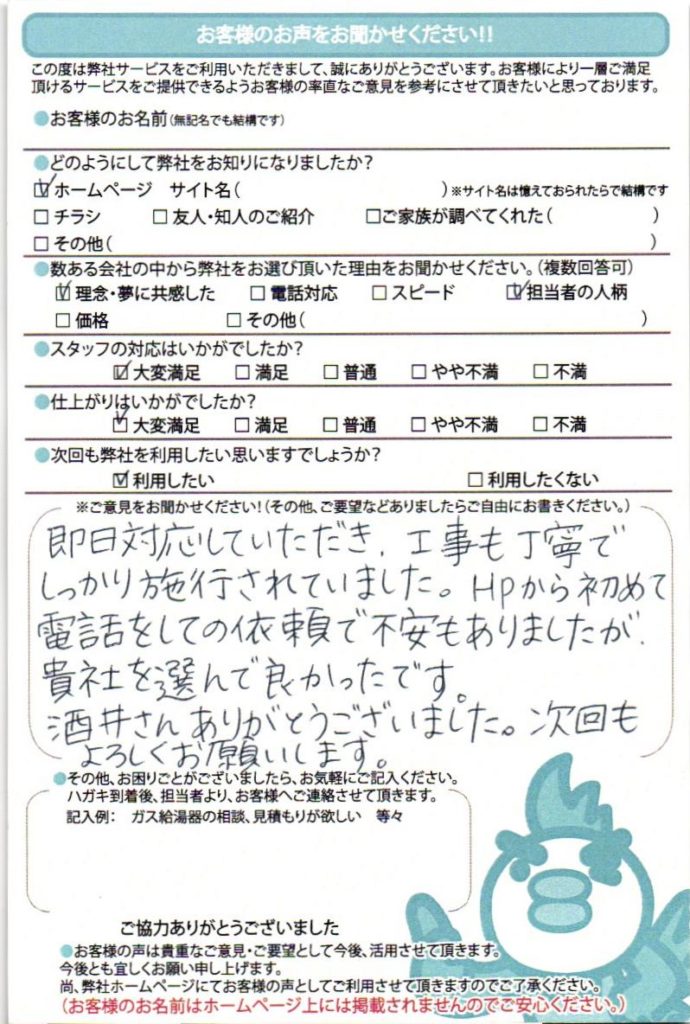 お客様のお声をお聞かせください!!
この度は弊社サービスをご利用いただきまして、誠にありがとうございます。お客様により一層ご満足
頂けるサービスをご提供できるようお客様の率直なご意見を参考にさせて頂きたいと思っております。
●お客様のお名前(無記名でも結構です)
●どのようにして弊社をお知りになりましたか?
☑ホームページ サイト名( )※サイト名は憶えておられたらで結構です
□チラシ □友人・知人のご紹介 □ご家族が調べてくれた( )
□その他( )
●数ある会社の中から弊社をお選び頂いた理由をお聞かせください。(複数回答可)
☑理念・夢に共感した □電話対応 □スピード ☑担当者の人柄
□価格 □その他( )
●スタッフの対応はいかがでしたか?
☑大変満足 □満足 □普通 □やや不満 □不満
●仕上がりはいかがでしたか?
☑大変満足 □満足 □普通 □やや不満 □不満
●次回も弊社を利用したい思いますでしょうか?
☑利用したい □利用したくない
※ご意見をお聞かせください!(その他、ご要望などありましたらご自由にお書きください。)
即日対応していただき、工事も丁寧で
しっかり施行されていました。HPから初めて
電話をしての依頼で不安もありましたが、
貴社を選んで良かったです。
酒井さんありがとうございました。次回も
よろしくお願いします。
●その他、お困りごとがございましたら、お気軽にご記入ください。
ハガキ到着後、担当者より、お客様へご連絡させて頂きます。
記入例: ガス給湯器の相談、見積もりが欲しい 等々
ご協力ありがとうございました
●お客様の声は貴重なご意見・ご要望として今後、活用させて頂きます。
今後とも宜しくお願い申し上げます。
尚、弊社ホームページにてお客様の声としてご利用させて頂きますのでご了承ください。
(お客様のお名前はホームページ上には掲載されませんのでご安心ください。)